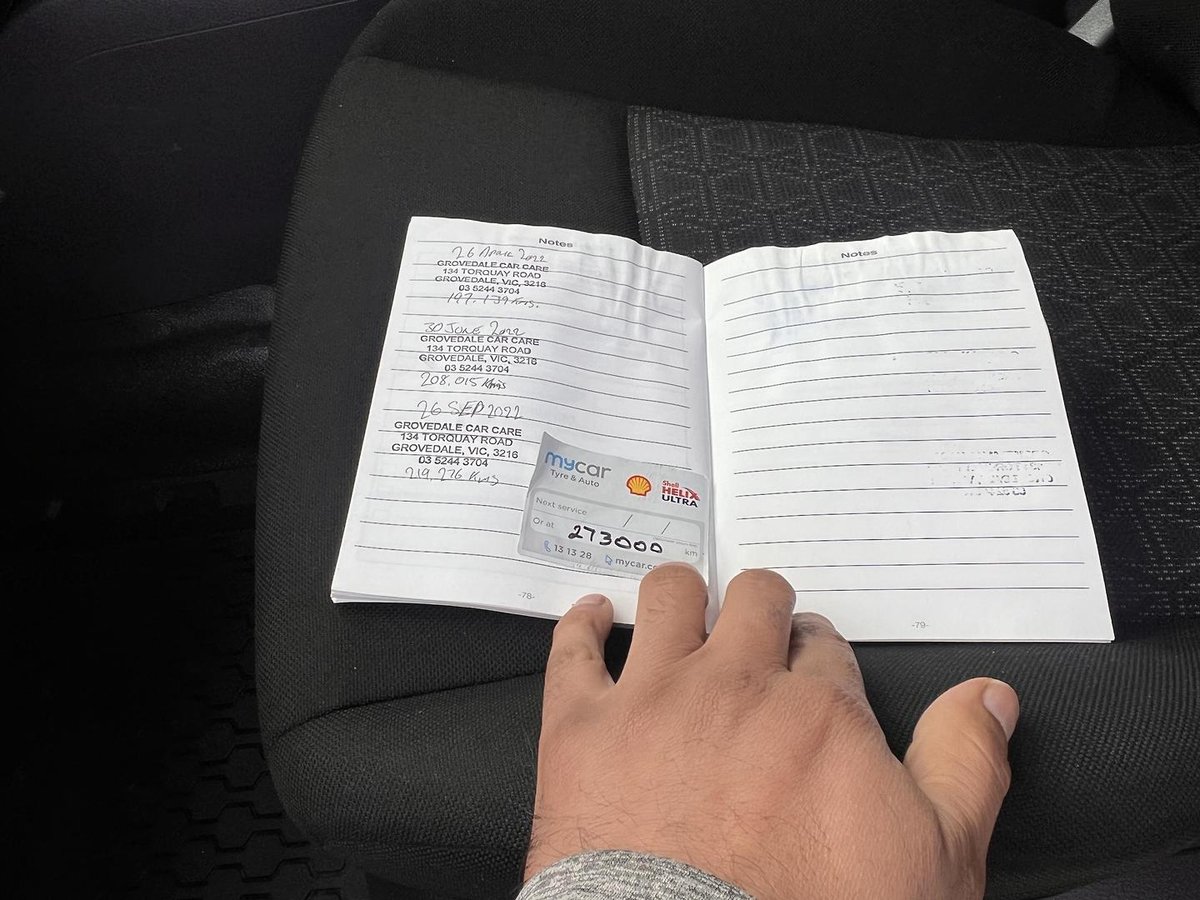 Notes
26 APRIL 2022
GROVEDALE CAR CARE
134 TORQUAY ROAD
GROVEDALE, VIC, 3216
03 5244 3704
197,139 Kms.
30 JUNE 2022
GROVEDALE CAR CARE
134 TORQUAY ROAD
GROVEDALE, VIC, 3216
03 5244 3704
208,015 Kms
26 SEP 2022
GROVEDALE CAR CARE
134 TORQUAY ROAD
GROVEDALE, VIC, 3216
03 5244 3704
219,276 Kms
mycar
Tyre & Auto
Shell
HELIX
ULTRA
Next service / /
Or at 273000 km
13 13 28 mycar.co
-78-
Notes
-79-